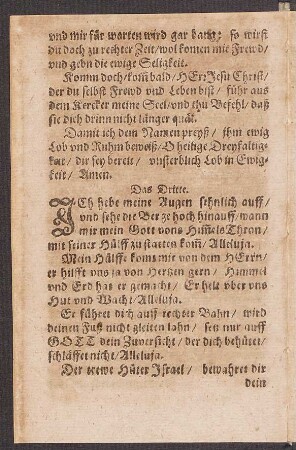 vnd mir für warten wird gar bang: so wirst
du doch zu rechter Zeit/wol komen mit Frewd/
vnd gebn die ewige Seligkeit.
Komm doch/kom̃ bald/HErr Jesu Christ/
der du selbst Frewd vnd Leben bist/ führ aus
dem Kercker meine Seel/vnd thu Befehl/daß
sie dich drinn nicht länger quäl.
Damit ich dem Namen preyß/ jhm ewig
Lob vnd Ruhm beweiß/O heilige Dreyfaltig-
kait/ dir sey bereit/ vnsterblich Lob in Ewig-
keit/ Amen.
Das Dritte.
ICh hebe meine Augen sehnlich auff/
vnd sehe die Berge hoch hinauff/wann
wir mein Gott vons Him̃els Thron/
mit seiner Hülff zu statten kom̃/Alleluja.
Mein Hülffe komt mir von dem HErrn/
er hilfft vns ja von Hertzen gern/ Himmel
vnd Erd hat er gemacht/ Er helt vber vns
Hut vnd Wacht/Alleluja.
Er führet dich auff rechter Bahn/ wird
deinen Fuß nicht gleiten lahn/ setz nur auff
GOTT dein Zuversicht/der dich behütet/
schläffet nicht/Alleluja.
Der trewe Hüter Israel/ bewahret dir
dein